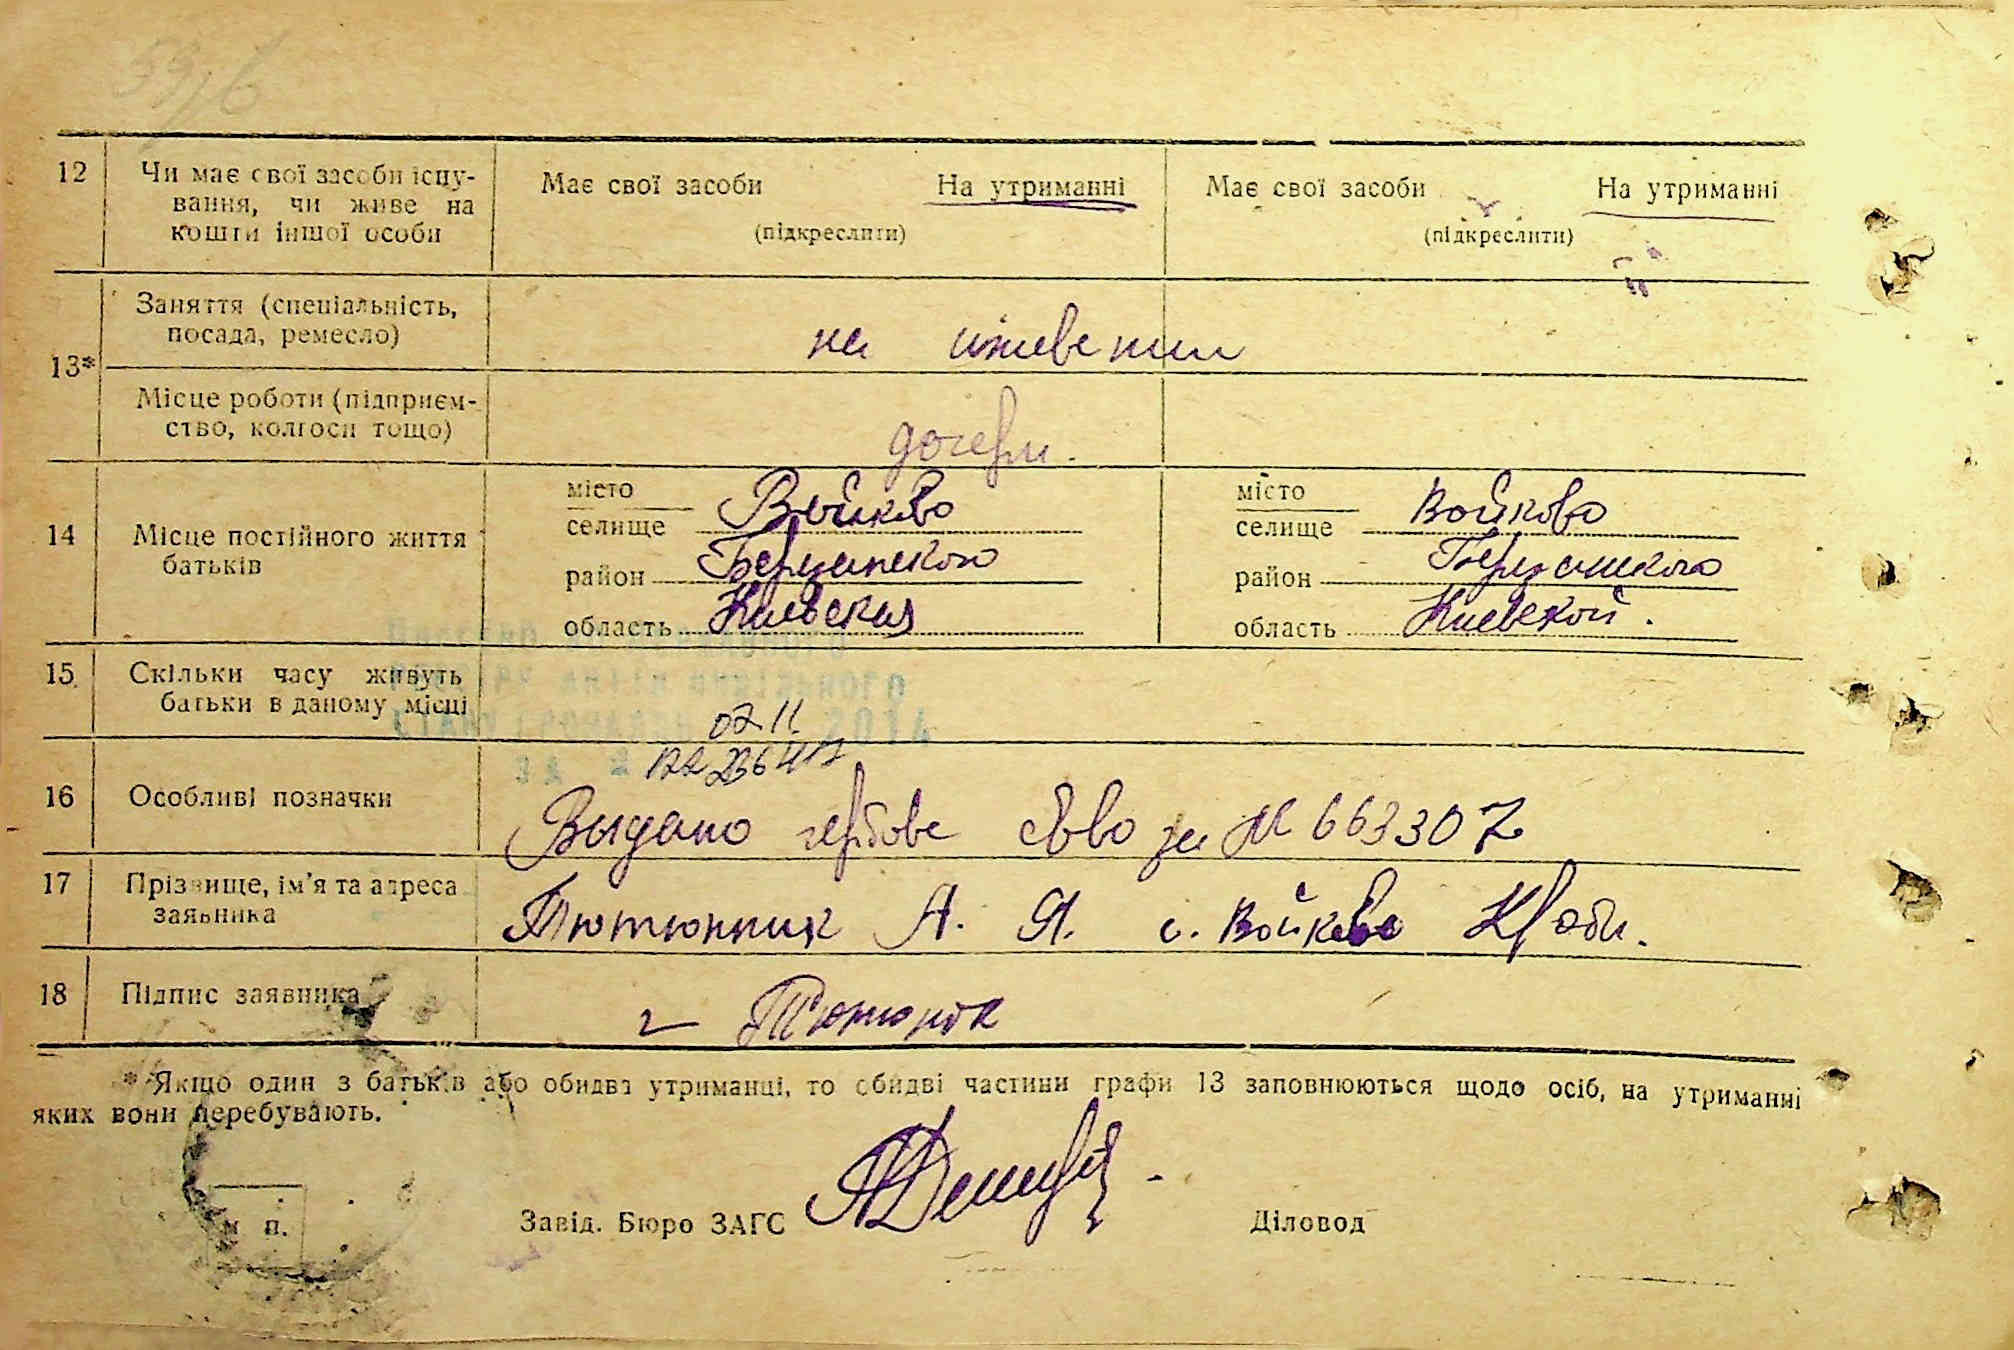 12 Чи має свої засоби існу- Має свої засоби На утриманні Має свої засоби На утриманні
вання, чи живе на
кошти іншої особи (підкреслити) (підкреслити)
Заняття (спеціальність,
посада, ремесло) на
13*
Місце роботи (підприєм-
ство, колгосп тощо) дочери.
місто місто
селище Войково селище Войково
14 Місце постійного життя
батьків район район
область Киевская область Киевской.
15 Скільки часу живуть
батьки в даному місці
07.11 2014
16 Особливі позначки Выдано гербове св-во за № 663307
17 Прізвище, ім'я та адреса
заявника Тютюнник А. Я. с. Войково обл.
18 Підпис заявника
* Якщо один з батьків або обидва утриманці, то обидві частини графи 13 заповнюються щодо осіб, на утриманні
яких вони перебувають.
м п. Завід. Бюро ЗАГС Діловод